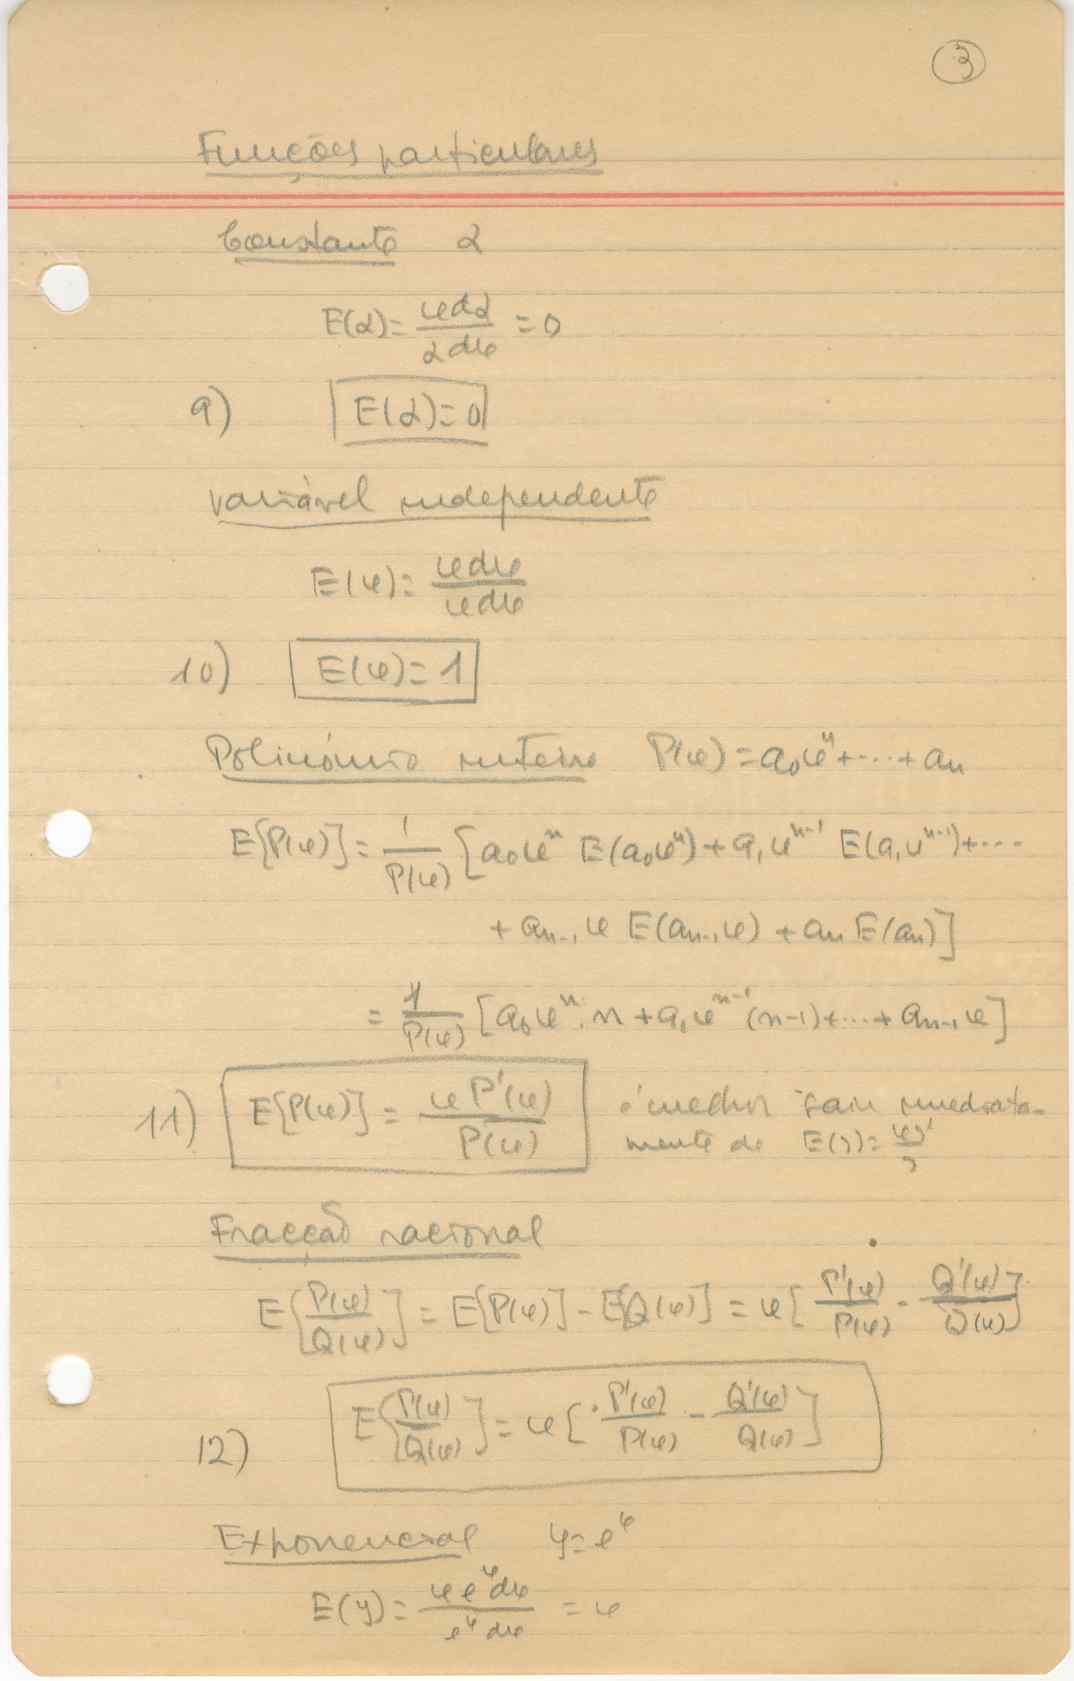 3
Funções particulares
Constante α
E(α) = u dα / α du = 0
9) E(α) = 0
variável independente
E(u) = u du / u du
10) E(u) = 1
Polinómio inteiro P(u) = a₀uⁿ + ··· + aₙ
E[P(u)] = 1/P(u) [a₀uⁿ E(a₀uⁿ) + a₁uⁿ⁻¹ E(a₁uⁿ⁻¹) + ···
+ aₙ₋₁ u E(aₙ₋₁u) + aₙ E(aₙ)]
= 1/P(u) [a₀uⁿ · n + a₁uⁿ⁻¹ (n-1) + ··· + aₙ₋₁ u]
11) E[P(u)] = u P'(u) / P(u) é melhor sair imediata-
mente de E(y) = uy'/y
Fracção racional
E[P(u)/Q(u)] = E[P(u)] - E[Q(u)] = u [P'(u)/P(u) - Q'(u)/Q(u)]
12) E[P(u)/Q(u)] = u [P'(u)/P(u) - Q'(u)/Q(u)]
Exponencial y = eᵘ
E(y) = u eᵘ du / eᵘ du = u